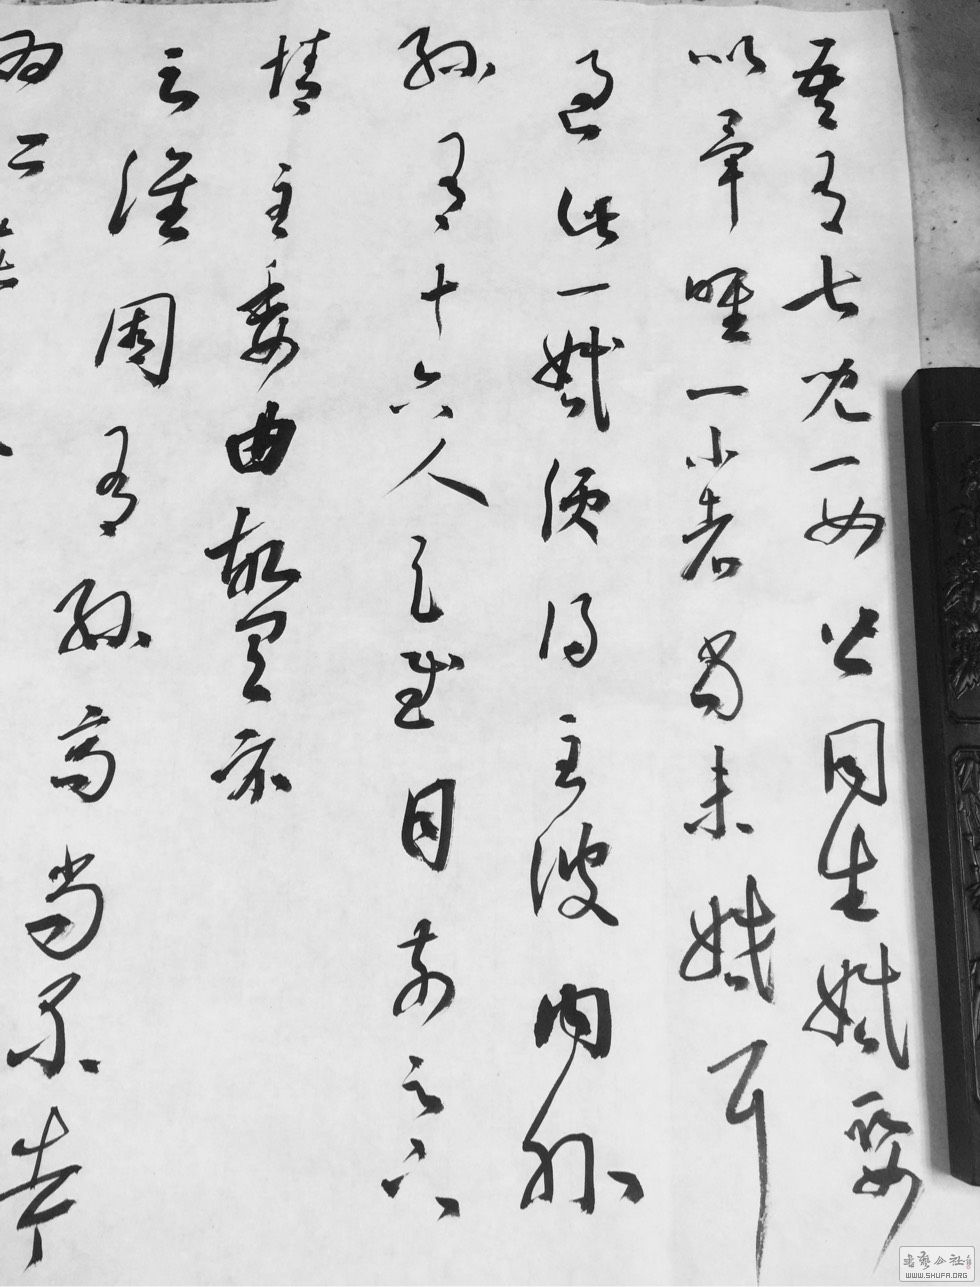 吾有七兒一女皆同生婚娶
以畢唯一小者尚未婚耳
過此一婚便得至彼内外
孫有十六人足慰目前足下
情至委曲故具示
云譙周有孫高尚不出
為所